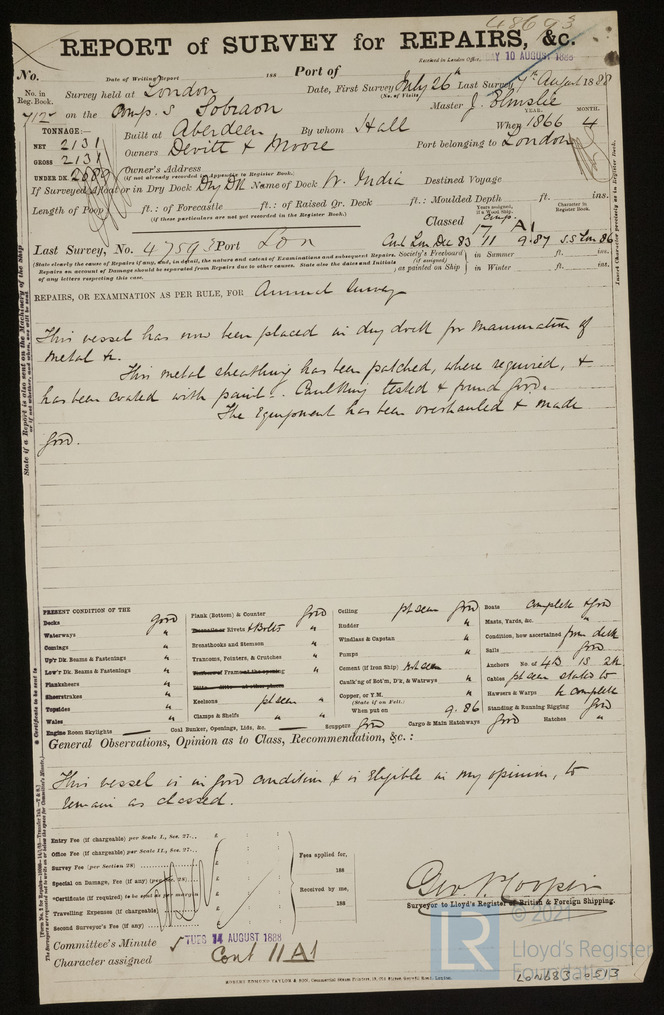 48693
REPORT of SURVEY for REPAIRS, &c.
Received in London Office, 10 AUGUST 1888
No. Date of Writing Report 188 Port of
No. in Reg. Book. Survey held at London Date, First Survey July 26th Last Survey 7th August 1888
(No. of Visits)
712 on the Comp. S Sobraon Master J. Elmslie
YEAR. MONTH.
TONNAGE:— Built at Aberdeen By whom Hall When 1866 4
NET 2131
GROSS 2131
Owners Devitt & Moore Port belonging to London
UNDER DK.
Owner's Address
(if not already recorded in Appendix to Register Book.)
If Surveyed Afloat or in Dry Dock Dry Dk Name of Dock W. India Destined Voyage
Length of Poop ft.: of Forecastle ft.: of Raised Qr. Deck ft.: Moulded Depth ft. ins.
(if these particulars are not yet recorded in the Register Book.)
Years assigned, if a Wood Ship. Character in Register Book.
Classed Comp. 17 A1
Last Survey, No. 47593 Port Lon Cont Lon Dec 83 11 9.87 S.S Lon 86
(State clearly the cause of Repairs if any, and, in detail, the nature and extent of Examinations and subsequent Repairs.
Repairs on account of Damage should be separated from Repairs due to other causes. State also the dates and Initials
of any letters respecting this case.
Society's Freeboard (if assigned) as painted on Ship in Summer ft. ins.
in Winter ft. ins.
REPAIRS, OR EXAMINATION AS PER RULE, FOR Annual Survey
This vessel has now been placed in dry dock for examination of
metal &c.
This metal sheathing has been patched, where required, &
has been coated with paint. Caulking tested & found good.
The Equipment has been overhauled & made
good.
PRESENT CONDITION OF THE
Decks good
Waterways "
Comings "
Up'r Dk. Beams & Fastenings "
Low'r Dk. Beams & Fastenings "
Planksheers "
Sheerstrakes "
Topsides "
Wales "
Engine Room Skylights —
Plank (Bottom) & Counter good
Rivets & Bolts "
Breasthooks and Stemson "
Transoms, Pointers, & Crutches "
Keelsons pt seen "
Clamps & Shelfs "
Coal Bunker, Openings, Lids, &c. —
Ceiling pt seen good
Rudder "
Windlass & Capstan "
Pumps "
Cement (if Iron Ship) not seen
Caulk'ng of Bot'm, D'k, & Watrwys "
Copper, or Y.M. "
(State if on Felt.)
When put on 9.86
Scuppers good Cargo & Main Hatchways good Hatches "
Boats complete & good
Masts, Yards, &c. "
Condition, how ascertained from deck
Sails good
Anchors No. of 4B 1S 2K
Cables pt seen stated to
Hawsers & Warps be complete
Standing & Running Rigging good
General Observations, Opinion as to Class, Recommendation, &c.:
This vessel is in good condition & is Eligible in my opinion, to
remain as classed.
Entry Fee (if chargeable) per Scale I., Sec. 27... £ : :
Office Fee (if chargeable) per Scale II., Sec. 27... £ : :
Survey Fee (per Section 28) £ : :
Special on Damage, Fee (if any) (per Sec. 28) £
*Certificate (if required) to be sent as per margin
Travelling Expenses (if chargeable) £
Second Surveyor's Fee (if any) £
Fees applied for,
188
Received by me,
188
Surveyor to Lloyd's Register of British & Foreign Shipping.
Committee's Minute TUES 14 AUGUST 1888
Character assigned Cont 11 A1
© 2021
LR
Lloyd's Register
Foundation
LON683-0513